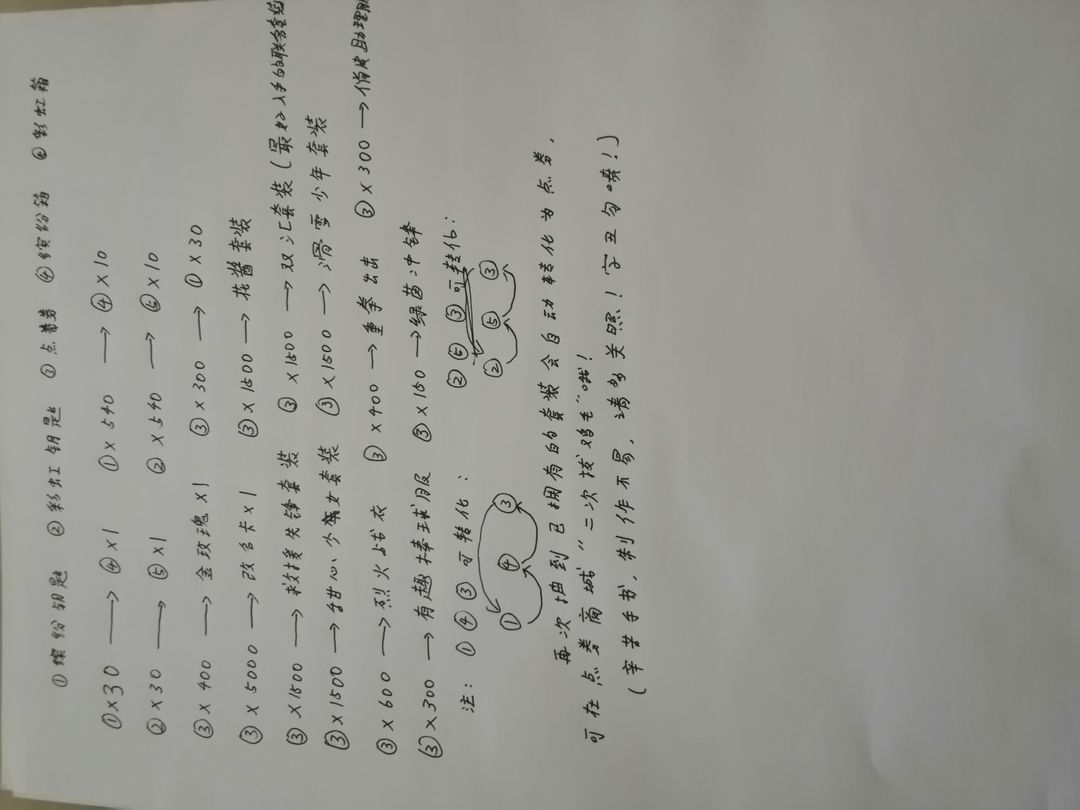 ①缤纷钥匙 ②彩虹钥匙 ③点券 ④缤纷箱 ⑥彩虹箱
①×30 → ④×1 ①×540 → ④×10
②×30 → ⑤×1 ②×540 → ⑤×10
③×400 → 金玫瑰×1 ③×300 → ①×30
③×5000 → 改名卡×1 ③×1500 → 花酱套装
③×1500 → 救援先锋套装 ③×1500 → 双汇套装(最好入手的联名套装
③×1500 → 甜心少女套装 ③×1500 → 滑雪少年套装
③×600 → 烈火战衣 ③×400 → 重拳出击 ③×300 → 俏皮助理服
③×300 → 有趣棒球服 ③×150 → 绿茵冲锋
注: ①④③可转化: ②⑤③可转化:
① ④ ③ ② ⑤ ③
再次抽到已拥有的套装会自动转化为点券,
可在点券商城"二次拔鸡毛"哦!
(辛苦手书,制作不易,请多关照!字丑勿喷!)